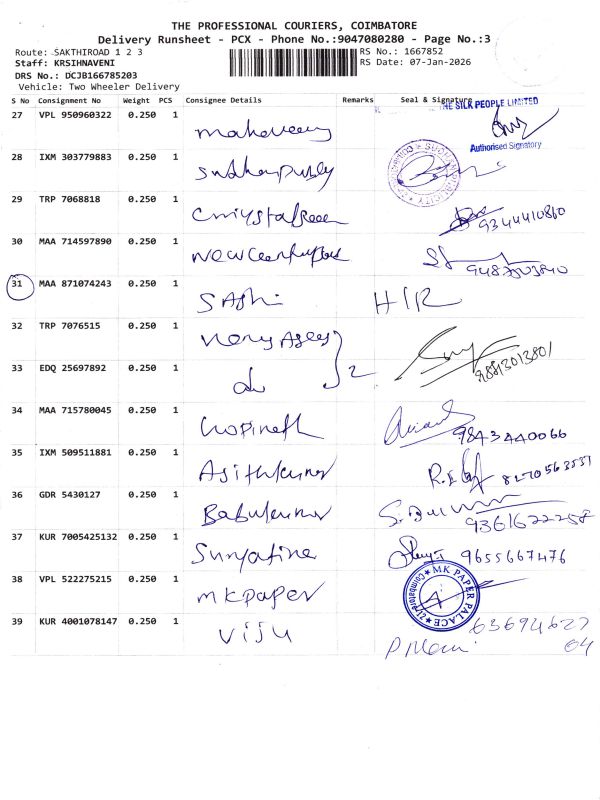 THE PROFESSIONAL COURIERS, COIMBATORE
Delivery Runsheet - PCX - Phone No.:9047080280 - Page No.:3
Route: SAKTHIROAD 1 2 3
Staff: KRSIHNAVENI
RS No.: 1667852
RS Date: 07-Jan-2026
DRS No.: DCJB166785203
Vehicle: Two Wheeler Delivery
S No Consignment No Weight PCS Consignee Details Remarks Seal & Signature
THE SILK PEOPLE LIMITED
27 VPL 950960322 0.250 1
Authorised Signatory
28 IXM 303779883 0.250 1
29 TRP 7068818 0.250 1 9344410860
30 MAA 714597890 0.250 1
31 MAA 871074243 0.250 1 SAShi HIR
32 TRP 7076515 0.250 1
33 EDQ 25697892 0.250 1 do 2
34 MAA 715780045 0.250 1 Gopinath 9843440066
35 IXM 509511881 0.250 1 Ajithkumar
36 GDR 5430127 0.250 1 Babukumar
37 KUR 7005425132 0.250 1 9655667476
38 VPL 522275215 0.250 1 mkpaper
MK PAPER PALACE Coimbatore-12
39 KUR 4001078147 0.250 1 viju 63694627
04